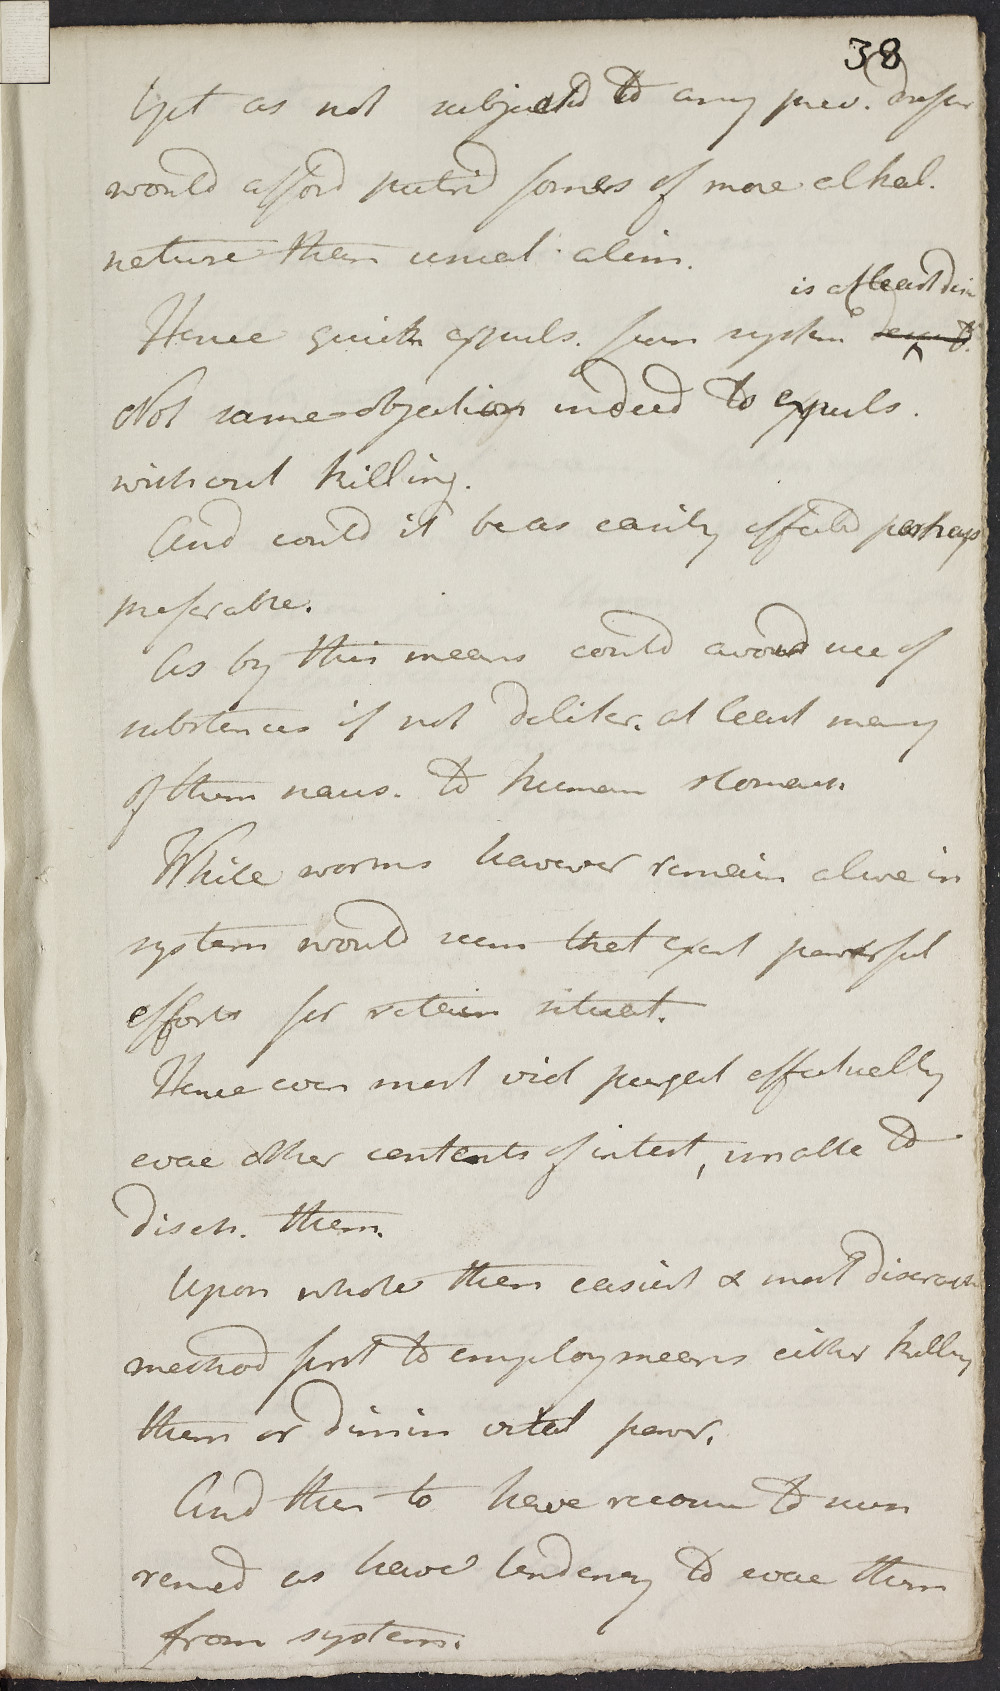 38
Yet as not subjected to any prev.
would afford putrid fomes of more alkal.
nature than usual alim.
is at least
Hence quick expuls. from system
Not same objection indeed to expuls.
without killing.
And could it be as easily effected perhaps
preferable.
As by this means could avoid use of
substances if not deliter. at least many
of them naus. to human stomach
While worms however remain alive in
system would seem that exert powerful
efforts for retain situat.
Hence even most viol purges effectually
evac other contents of intest, unable to
disch. them.
Upon whole then easiest & most
method first to employ means either killing
them or dimin vital power.
And then to have recourse to such
remed as have tendency to evac them
from system.